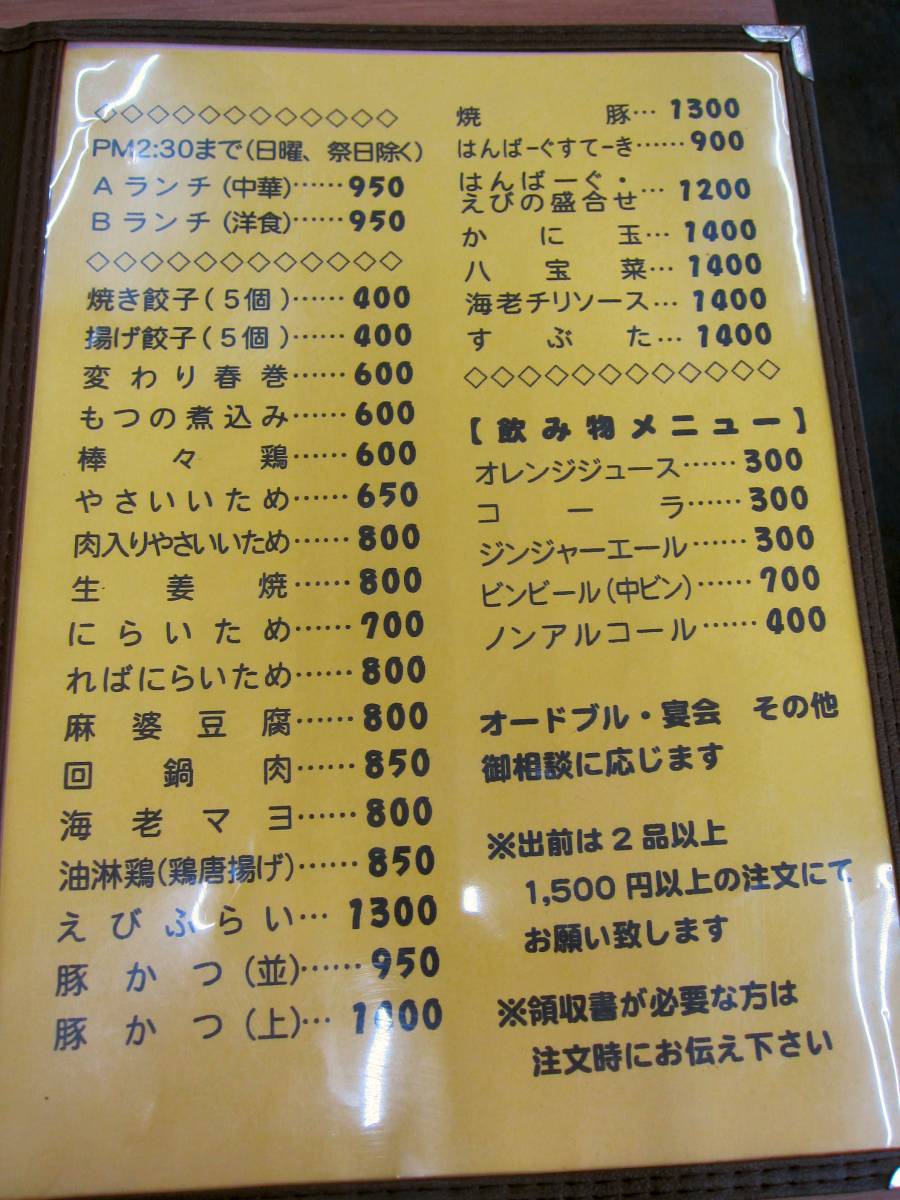 ◇◇◇◇◇◇◇◇◇◇◇◇
PM2:30まで(日曜、祭日除く)
Aランチ(中華)……950
Bランチ(洋食)……950
◇◇◇◇◇◇◇◇◇◇◇◇
焼き餃子(5個)……400
揚げ餃子(5個)……400
変わり春巻……600
もつの煮込み……600
棒々鶏……600
やさいいため……650
肉入りやさいいため……800
生姜焼……800
にらいため……700
ればにらいため……800
麻婆豆腐……800
回鍋肉……850
海老マヨ……800
油淋鶏(鶏唐揚げ)……850
えびふらい…1300
豚かつ(並)……950
豚かつ(上)…
焼豚…1300
はんばーぐすてーき……900
はんばーぐ・
えびの盛合せ…1200
かに玉…1400
八宝菜…1400
海老チリソース…1400
すぶた…1400
◇◇◇◇◇◇◇◇◇◇◇◇
【飲み物メニュー】
オレンジジュース……300
コーラ……300
ジンジャーエール……300
ビンビール(中ビン)……700
ノンアルコール……400
オードブル・宴会 その他
御相談に応じます
※出前は2品以上
1,500円以上の注文にて
お願い致します
※領収書が必要な方は
注文時にお伝え下さい